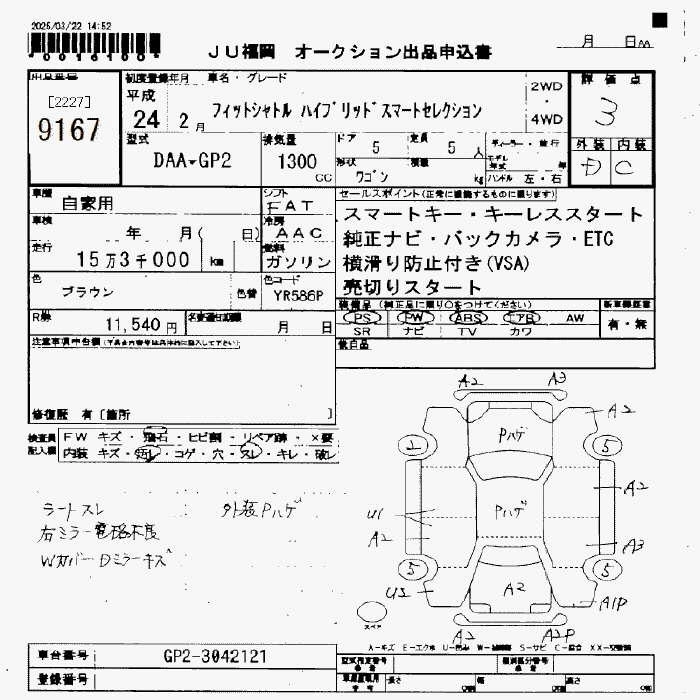 2025/03/22 14:52
*0016100*
JU福岡 オークション出品申込書
月 日
出品番号
[2227]
9167
初度登録年月 車名・グレード
平成
24 2月
フィットシャトル ハイブリッドスマートセレクション
2WD
・
4WD
評価点
3
外装 内装
D C
型式
DAA-GP2
排気量
1300
cc
ドア
5
定員
5 人
形状
ワゴン
積載
kg
ディーラー・並行
モデル年式 年
ハンドル 左・右
車歴
自家用
シフト
FAT
車検
年 月( 日)
冷房
AAC
走行
15万3千000 km
燃料
ガソリン
色
ブラウン
色替
色コード
YR586P
R券
11,540 円
名変通知期限
月 日
セールスポイント(正常に機能するものに限ります)
スマートキー・キーレススタート
純正ナビ・バックカメラ・ETC
横滑り防止付き(VSA)
売切りスタート
装備品(純正品に限り○をつけてください)
PS PW ABS エアB AW
SR ナビ TV カワ
新車保証書
有・無
後日品
注意事項申告欄
修復歴 有〔箇所 〕
検査員記入欄
FW キズ・飛石・ヒビ割・リペア跡・×要
内装 キズ・汚レ・コゲ・穴・スレ・キレ・破レ
シートスレ 外装Pハゲ
右ミラー電格不良
Wカバー Dミラーキズ
A2 A3
A2
Pハゲ
2 5
A2
U1
Pハゲ
A2
A3
5 5
U2
A2
A1P
スペア
A2 A2P
A-キズ E-エクボ U-凹み W-補修跡 S-サビ C-腐食 XX-交換済
車台番号
GP2-3042121
登録番号
型式指定番号
類別区分番号
長さ cm 幅 cm 高さ cm